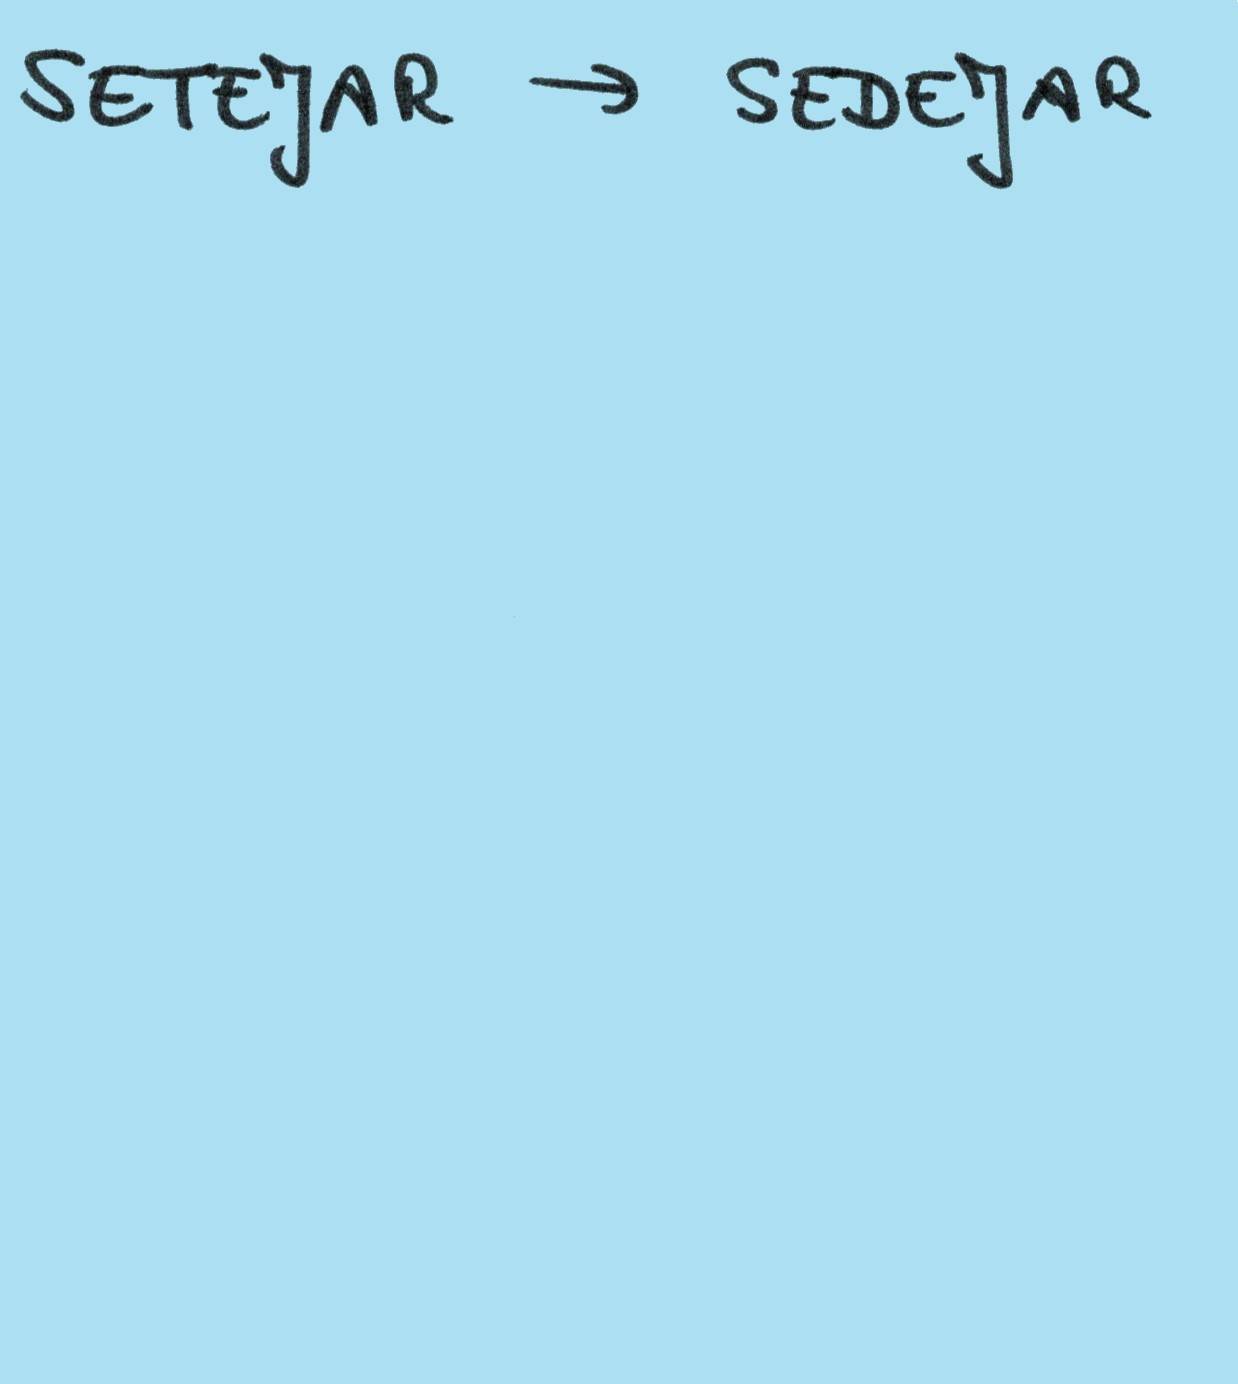 SETEJAR → SEDEJAR